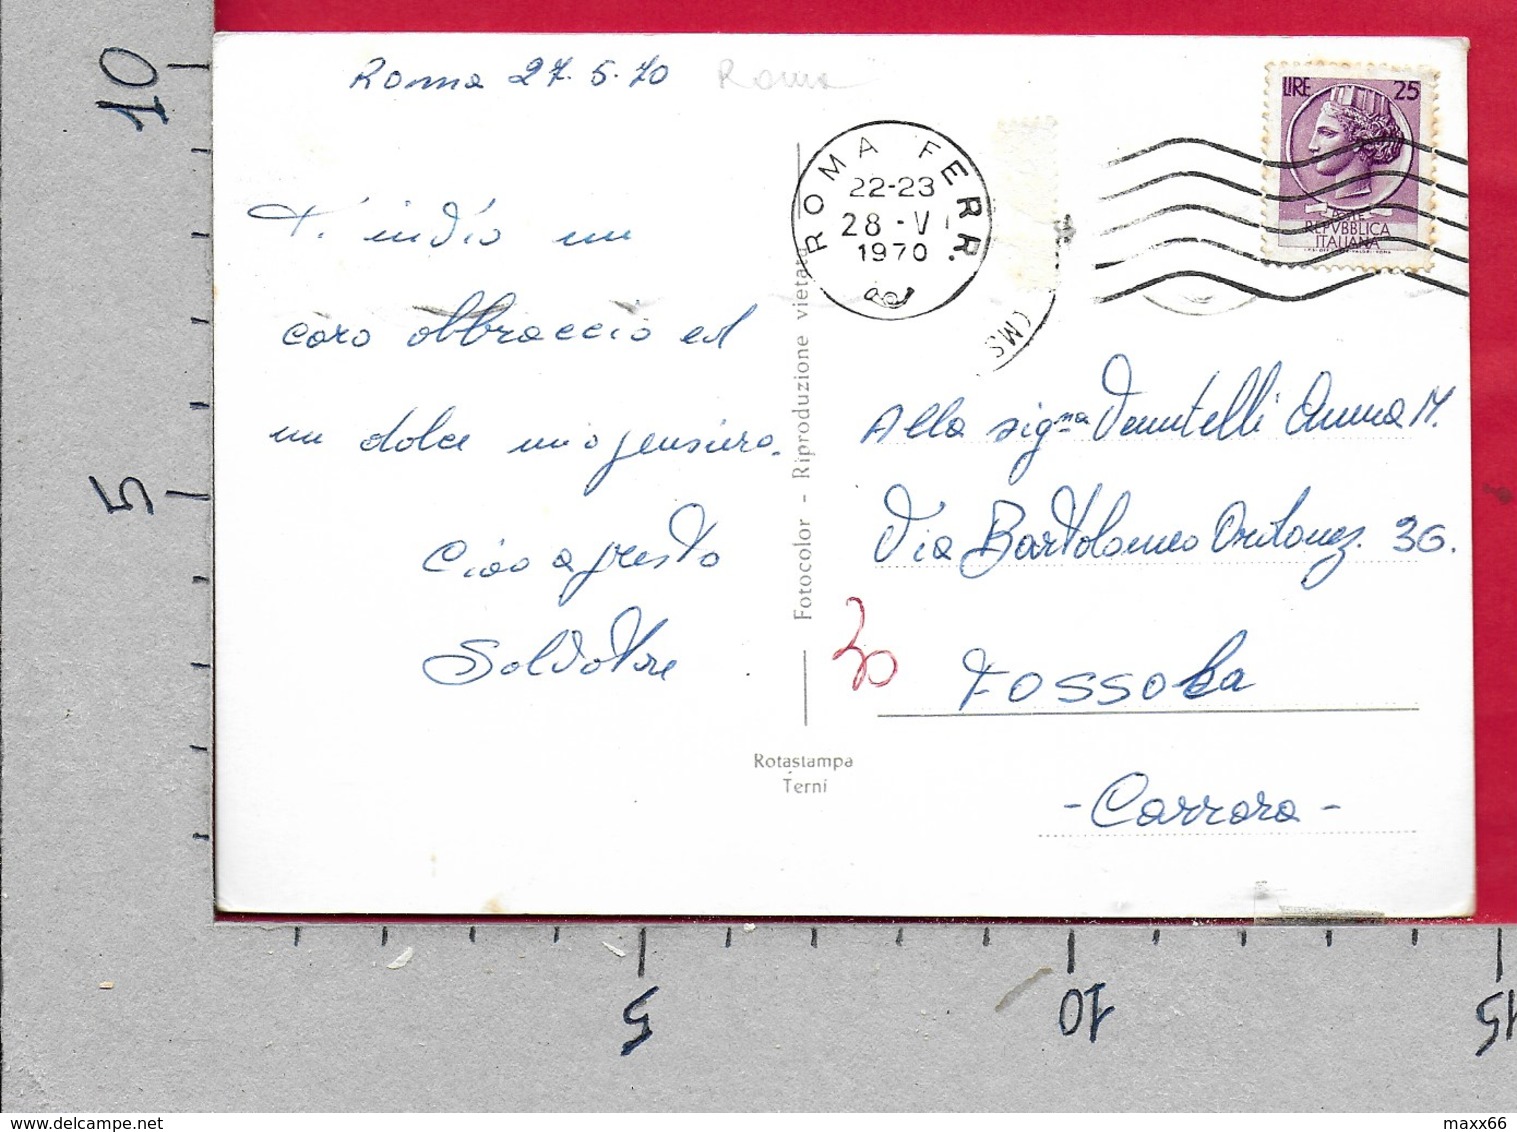 Roma 27.5.70
Roma
T'invio un
caro abbraccio ed
un dolce mio pensiero.
Ciao a presto
Salvatore
ROMA FERR.
22-23
28-VI
1970
LIRE 25
REPVBBLICA
ITALIANA
Fotocolor - Riproduzione vietata
Alla sig.na Venutelli Anna M.
Via Bartolomeo Ordonez. 36.
30
FOSSOLa
- Carrara -
Rotastampa
Terni
10
5
5
10
15
delcampe.net
maxx66